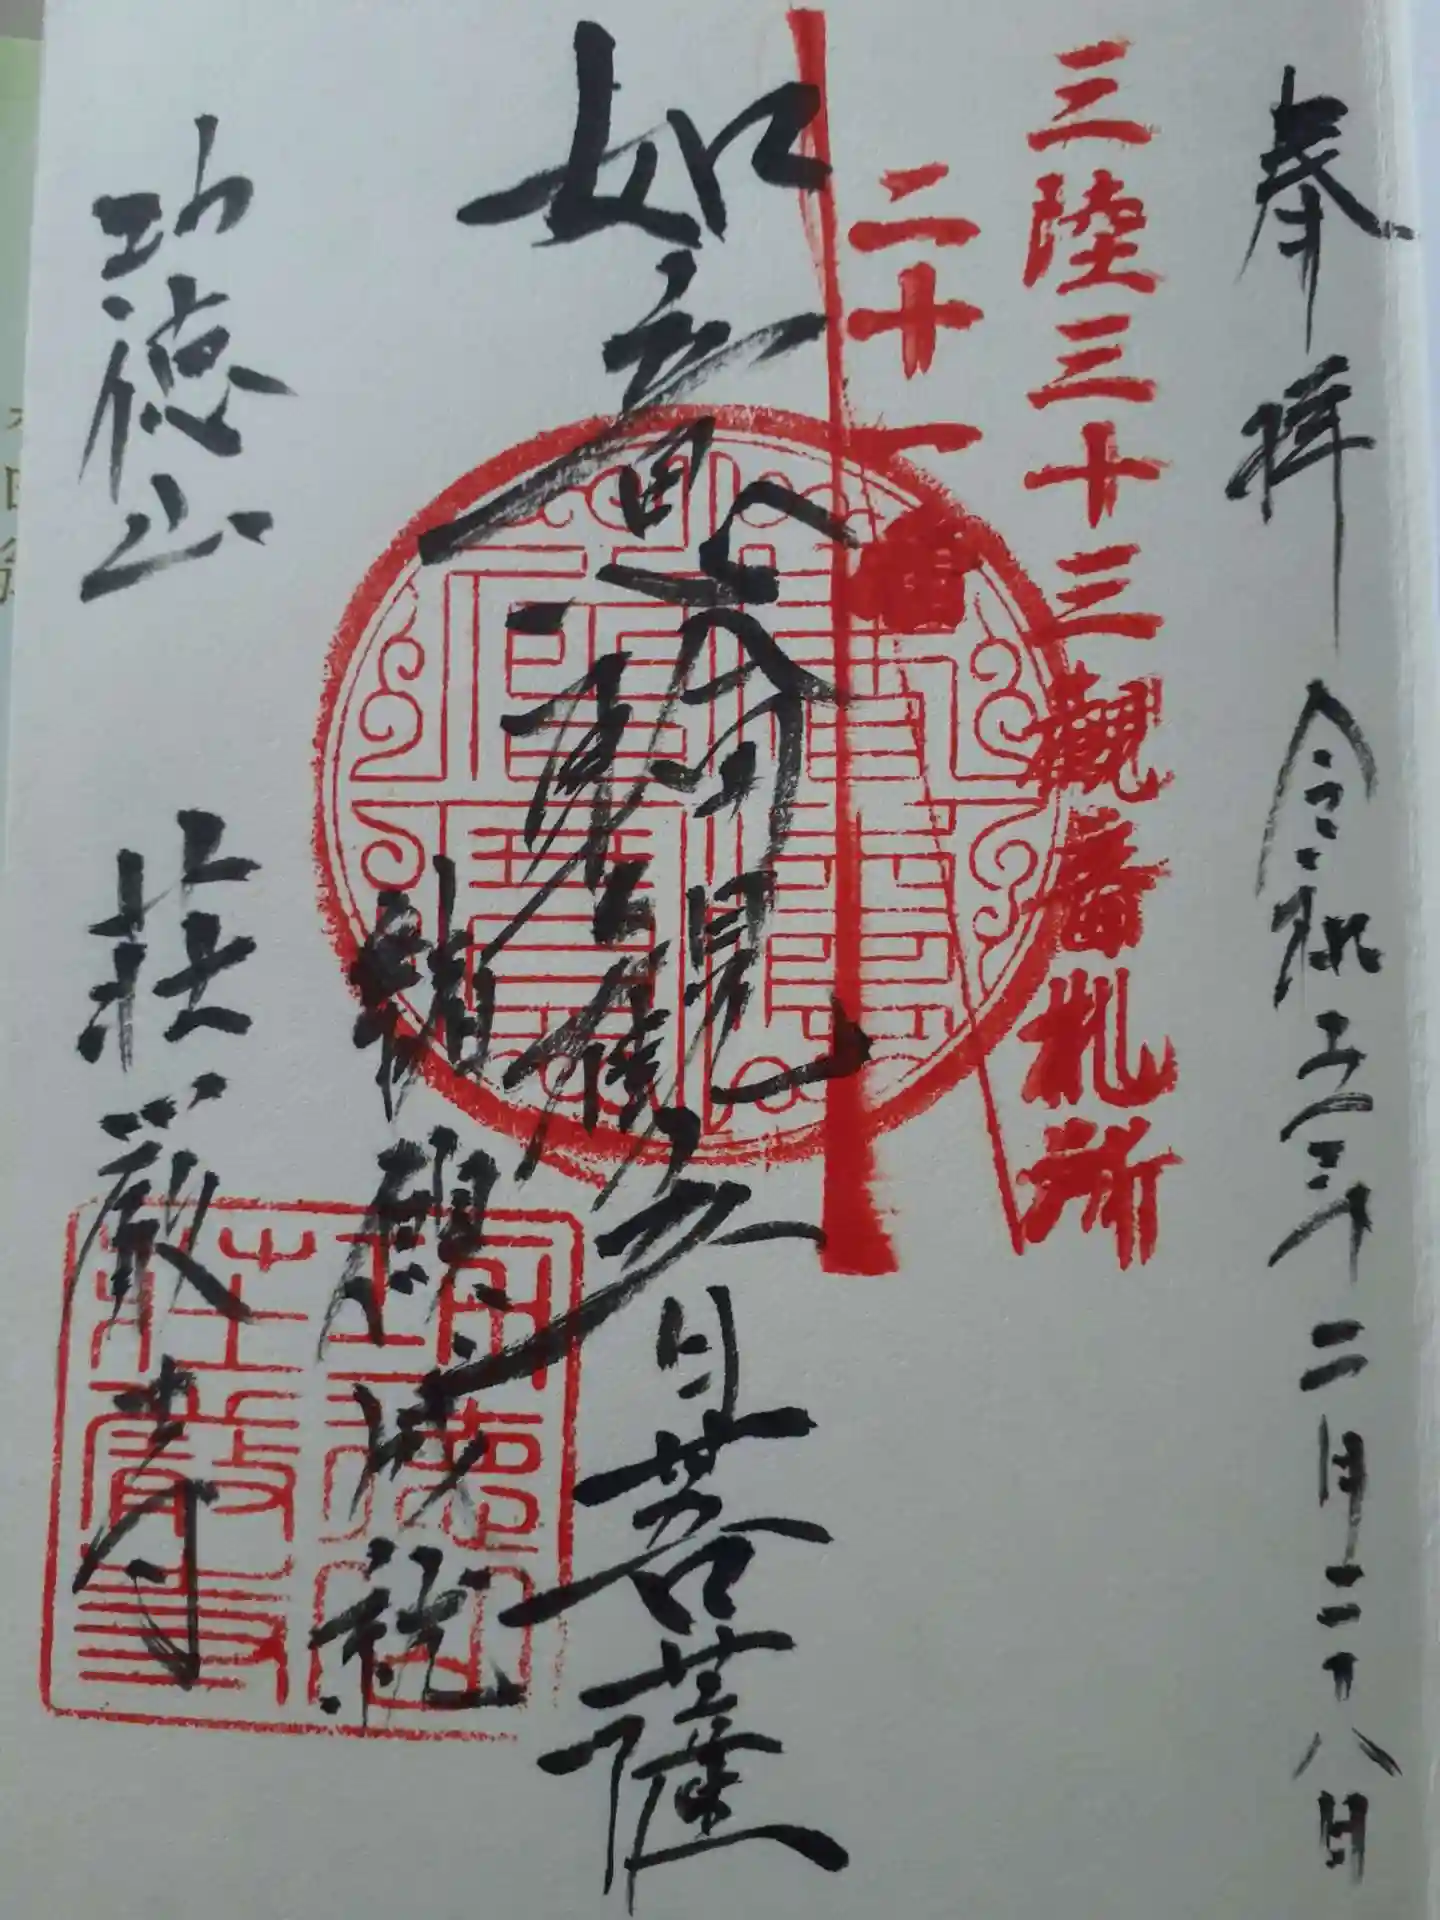 奉拝 令和五年二月二十八日
三陸三十三観音札所
二十一番
如意輪観世音菩薩
諸願成就
功徳山 荘厳寺